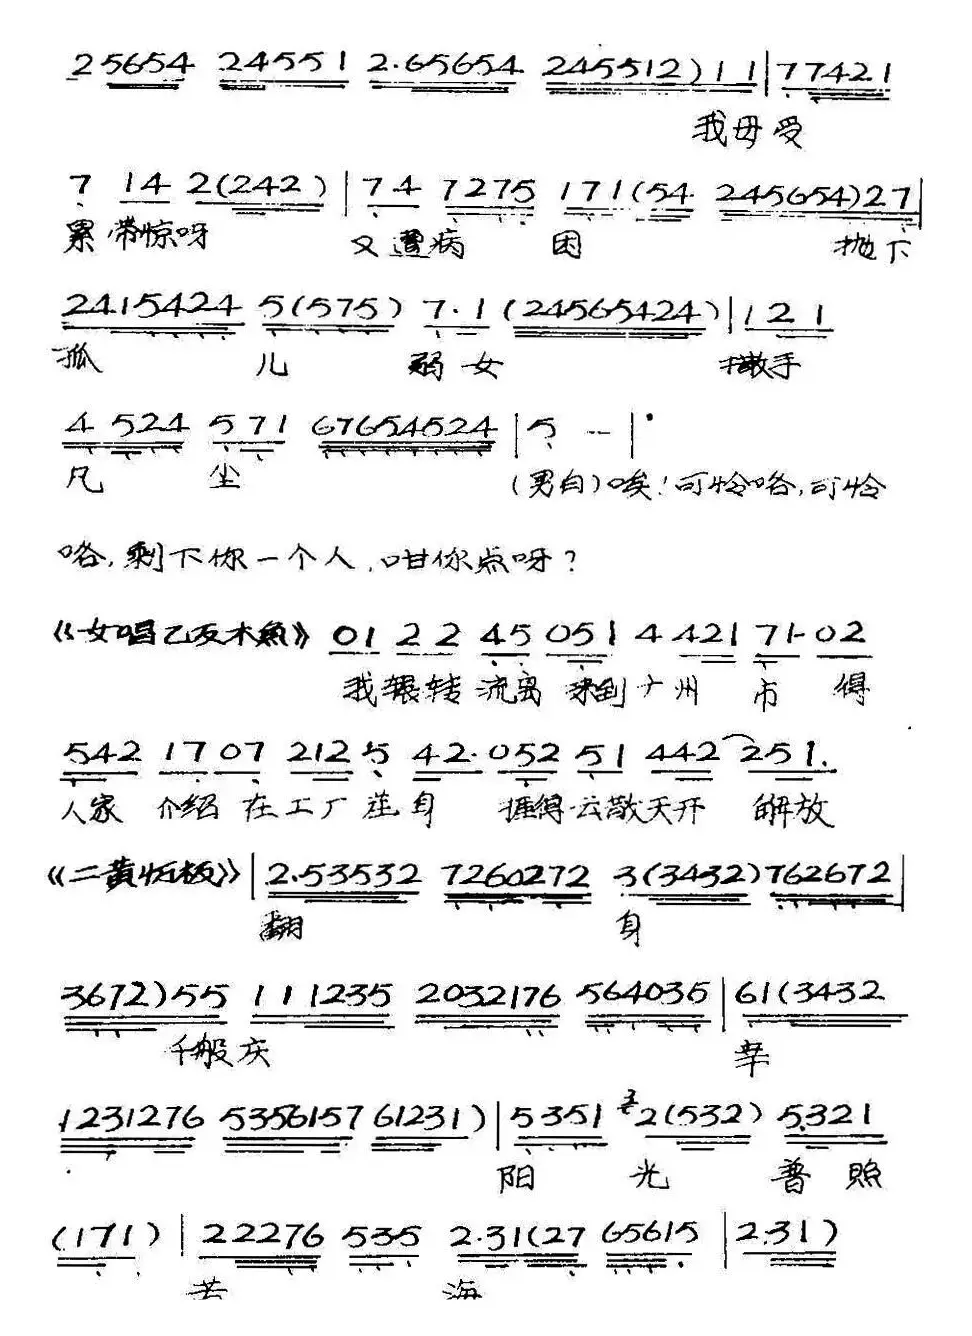 2 5654 24551 2.65654 245512) 1 1 | 77421
我母受
7 14 2(242) | 74 7275 171(54 245654)27 |
累带惊呀 又遭病 困 抛下
2415424 5(575) 7.1(24565424) | 121
孤 儿 弱女 撒手
4 524 571 67654524 | 5 — |
凡 尘 (男白)唉!可怜咯,可怜
咯,剩下你一个人,咁你点呀?
《女唱乙反木魚》 01 22 45 051 4 421 71- 02
我辗转 流离 来到广州 市 得
542 17 07 212 5 42. 052 51 442 251.
人家 介绍 在工厂 身 得云散天开 解放
《二黄板》 | 2.53532 7260272 3(3432)762672 |
翻 身
3672)55 111235 2032176 564035 | 61(3432
千般庆 幸
1231276 5356157 61231) | 5351 2(532) 5321
阳 光 普照
(171) | 22276 535 2.31(27 65615 | 2.31)
苦 海